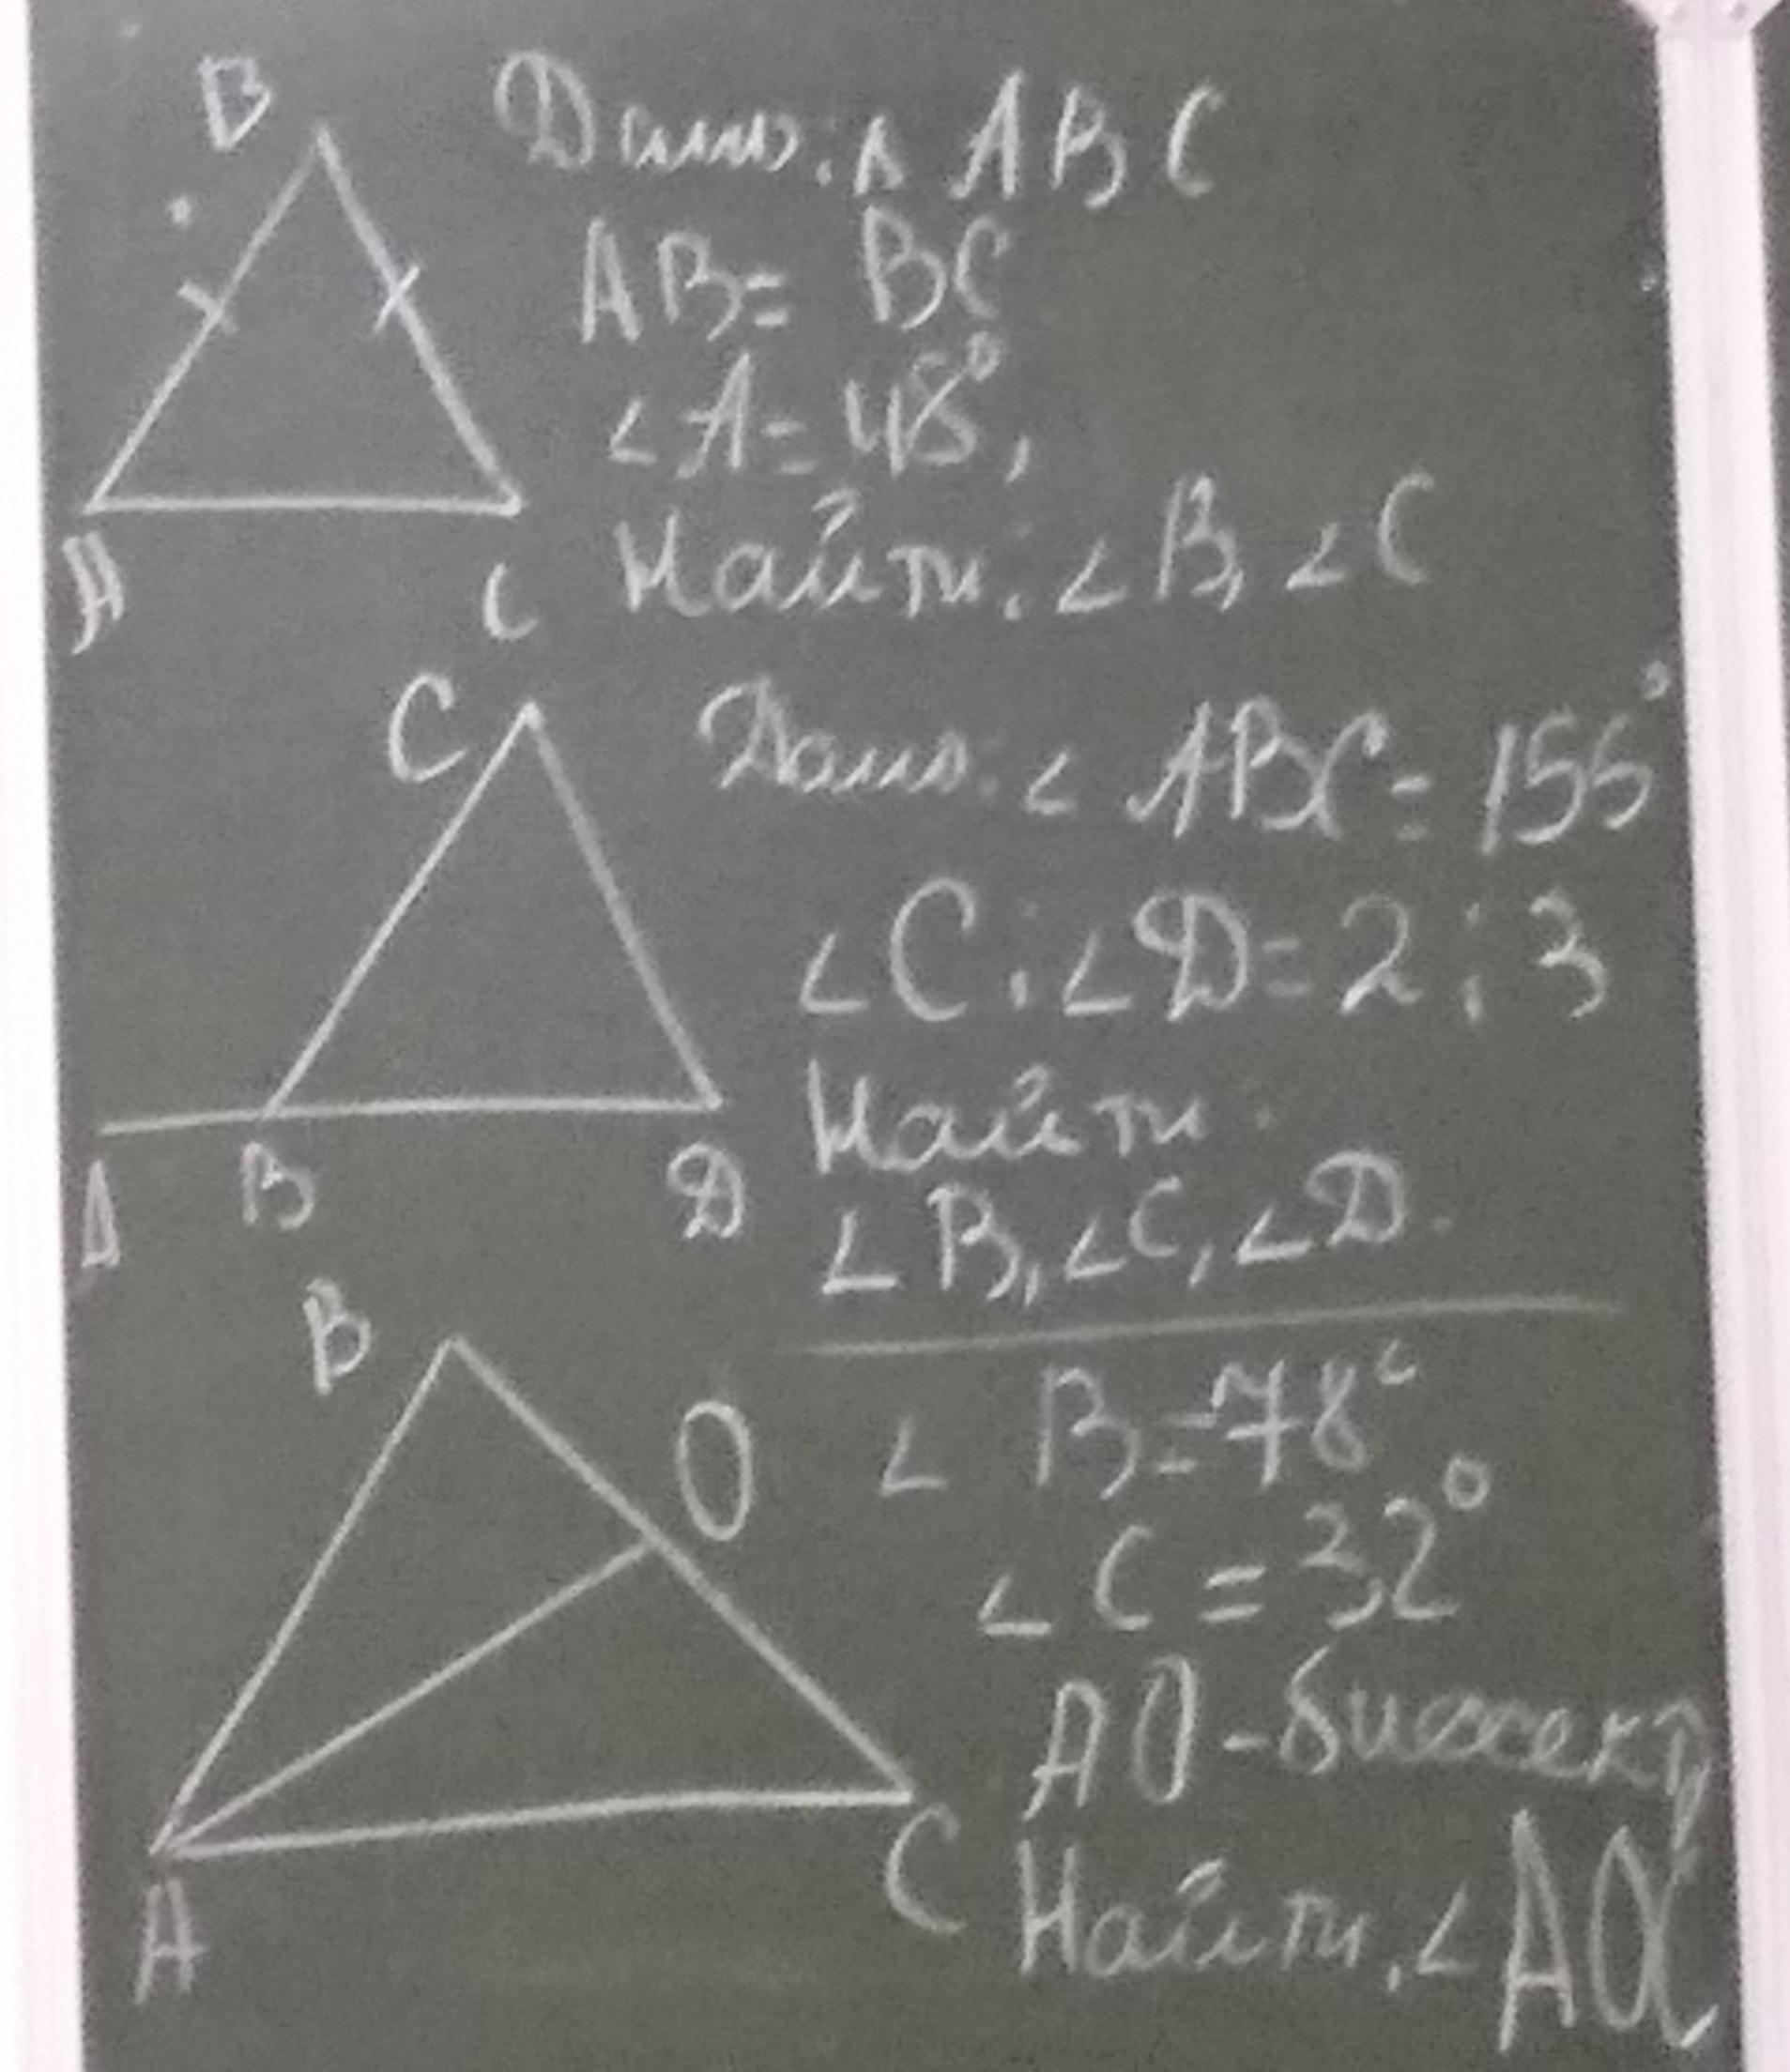 B
Дано: Δ ABC
AB = BC
∠A = 48°,
Найти: ∠B, ∠C
A
C
C
Дано: ∠ ABC = 155°
∠C : ∠D = 2 : 3
Найти:
∠B, ∠C, ∠D.
A B D
B
O
∠ B = 78°
∠ C = 32°
AO - биссект
Найти: ∠ AOC
A
C